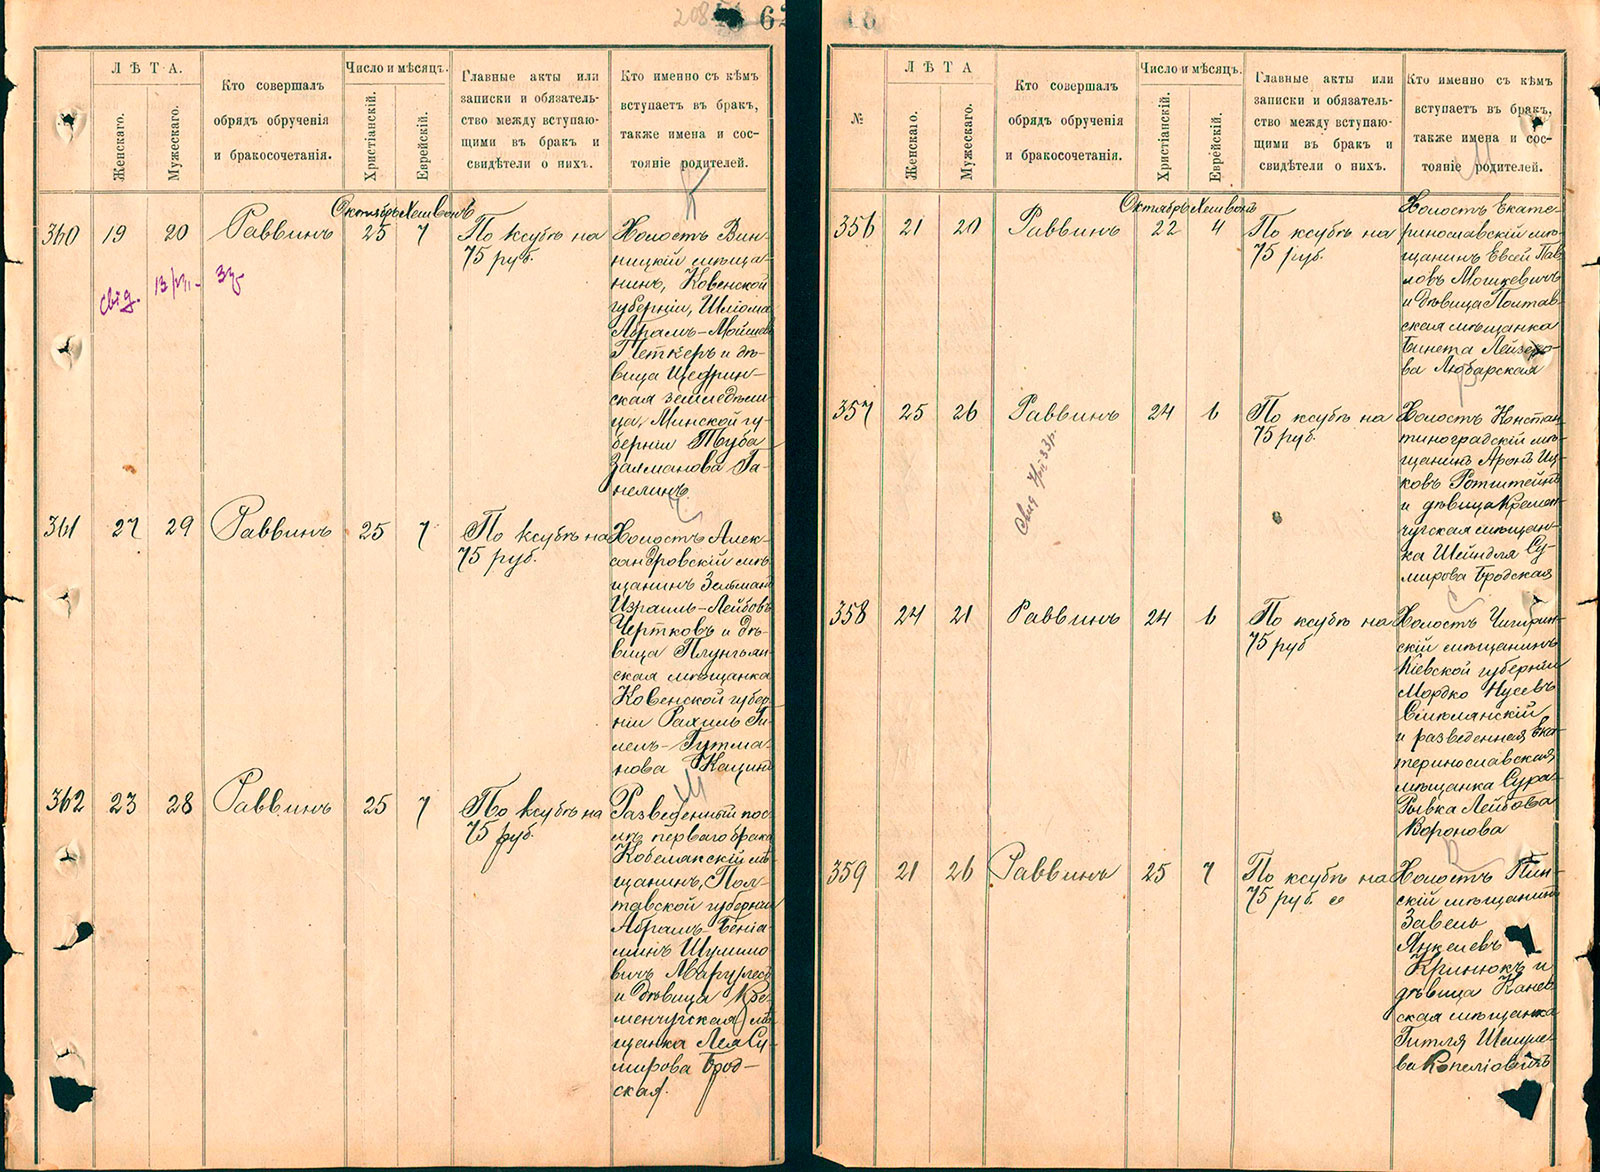 208
62
ЛѢТА.
Женскаго.
Мужескаго.
Кто совершалъ
обрядъ обрученія
и бракосочетанія.
Число и мѣсяцъ.
Христіанскій.
Еврейскій.
Главные акты или
записки и обязатель-
ство между вступаю-
щими въ бракъ и
свидѣтели о нихъ.
Кто именно съ кѣмъ
вступаетъ въ бракъ,
также имена и сос-
тояніе родителей.
360
19
20
Раввинъ
Октябрь
25
Хешвонъ
7
По ксубѣ на
75 руб.
Холостъ Вин-
ницкій мѣща-
нинъ, Ковенской
губерніи, Шліома
Абрамъ-Мойшев
Петкеръ и дѣ-
вица Щедрин-
ская земледѣли-
ца, Минской гу-
берніи Туба
Залманова Га-
нелинъ.
свід.
361
27
29
Раввинъ
25
7
По ксубѣ на
75 руб.
Холостъ Алек-
сандровскій мѣ-
щанинъ Зельман
Израиль-Лейбовъ
Чертковъ и дѣ-
вица Плунгян-
ская мѣщанка
Ковенской губер-
ніи Рахиль Ги-
лель-Гутма-
нова Кацинъ
362
23
28
Раввинъ
25
7
По ксубѣ на
75 руб.
Разведенный пос-
лѣ перваго брака
Кобелякскій мѣ-
щанинъ, Пол-
тавской губерніи
Абрамъ-Беніа-
минъ Шулимо-
вичъ
и дѣвица Кре-
менчугская мѣ-
щанка Лея Су-
мирова Брод-
ская.
№
ЛѢТА
Женскаго.
Мужескаго.
Кто совершалъ
обрядъ обрученія
и бракосочетанія.
Число и мѣсяцъ.
Христіанскій.
Еврейскій.
Главные акты или
записки и обязатель-
ство между вступаю-
щими въ бракъ и
свидѣтели о нихъ.
Кто именно съ кѣмъ
вступаетъ въ бракъ,
также имена и сос-
тояніе родителей.
356
21
20
Раввинъ
Октябрь
22
Хешвонъ
4
По ксубѣ на
75 руб.
Холостъ Екате-
ринославскій мѣ-
щанинъ Евсей Пав-
ловъ Мошкевичъ
и дѣвица Полтав-
ская мѣщанка
Бинета Лейзеро-
ва Любарская
357
25
26
Раввинъ
24
6
По ксубѣ на
75 руб.
Холостъ Констан-
тиноградскій мѣ-
щанинъ Аронъ Иц-
ковъ Ротштейнъ
и дѣвица Кремен-
чугская мѣщан-
ка Шейндля Су-
мирова Бродская
358
24
21
Раввинъ
24
6
По ксубѣ на
75 руб
Холостъ Чигирин-
скій мѣщанинъ
Кіевской губерніи
Мордко Нусевъ
Смилянскій
и разведенная Ека-
теринославская
мѣщанка Сура-
Рывка Лейбова
Воронова
359
21
26
Раввинъ
25
7
По ксубѣ на
75 руб.
Холостъ Пин-
скій мѣщанинъ
Завель
Янкелевъ
Кринюкъ и
дѣвица Канев-
ская мѣщанка
Гитля Шмуле-
ва Копеліовичъ